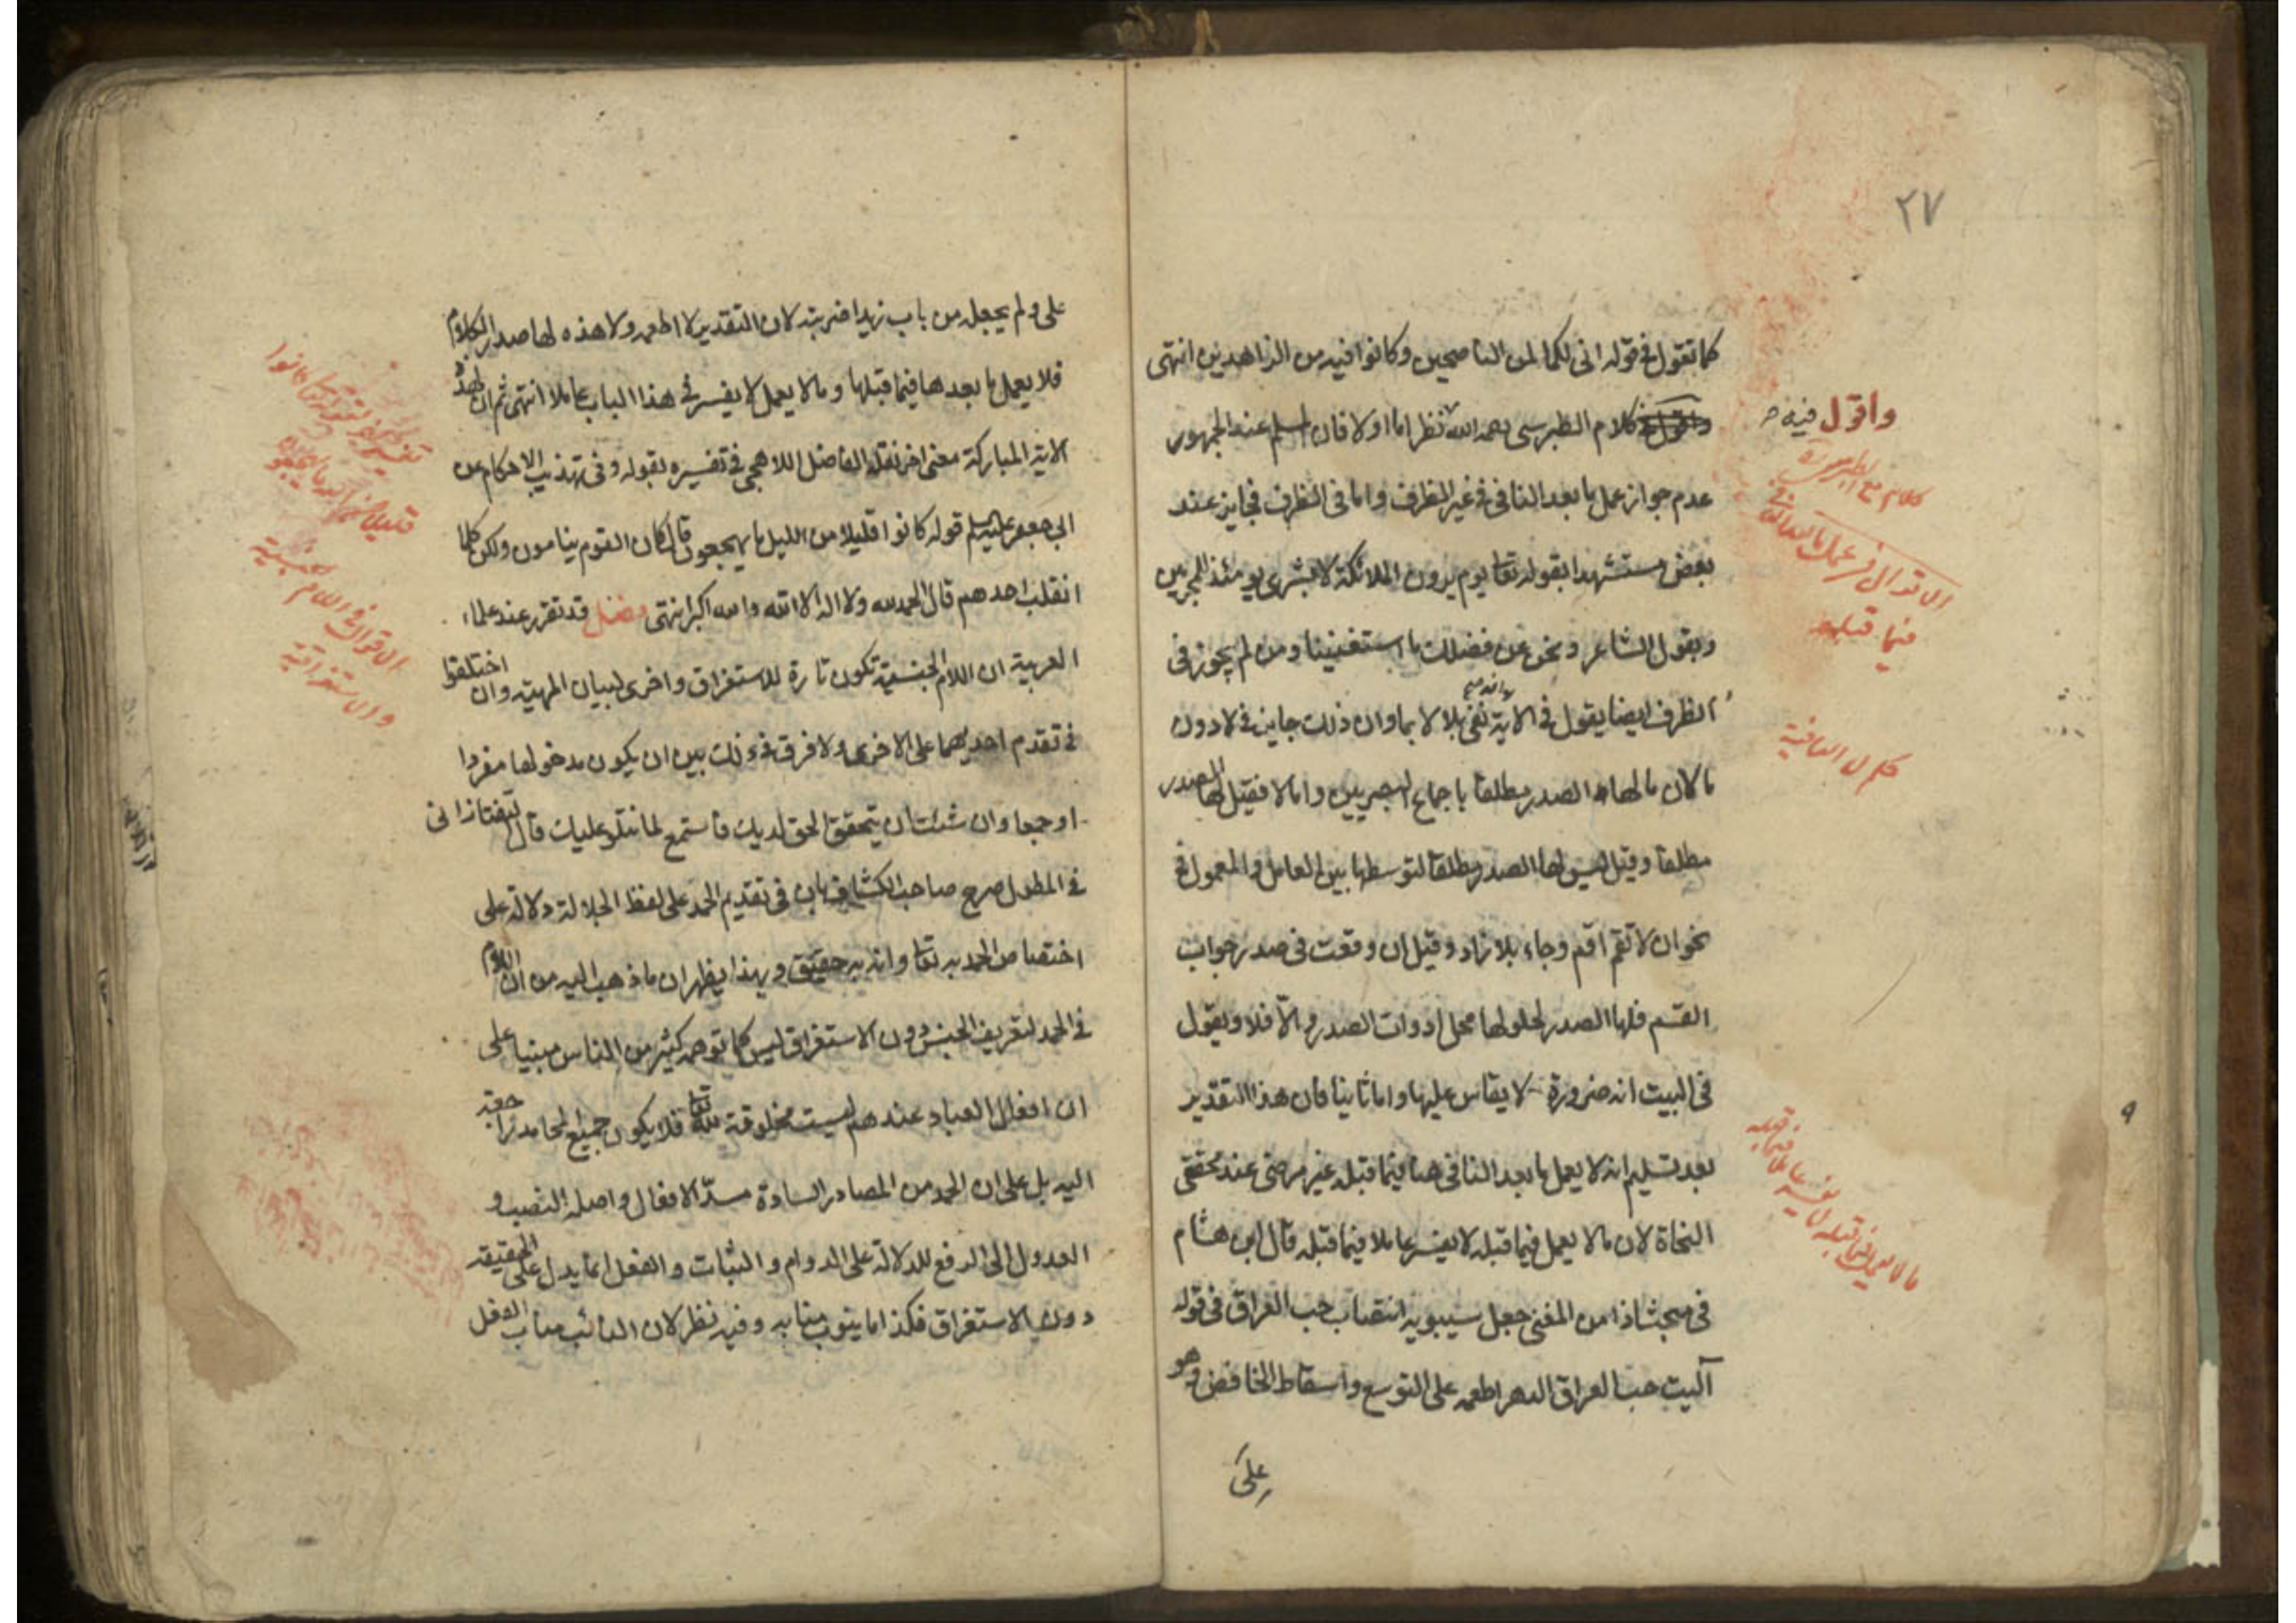 ٢٧
كما تقول في قوله انى لكما لمن الناصحين وكانوا فيه من الزاهدين انتهى
واقول فيه
كلام الطبرسى رحمه الله نظر اما اولا فان المسلم عند الجمهور
عدم جواز عمل ما بعد النافى في غير الظرف واما فى الظرف فجايز عند
بعض مستشهدا بقوله تعا يوم يرون الملائكة لا بشرى يومئذ للمجرمين
وبقول الشاعر ونحن عن فضلك ما استغنينا ومن لم يجوز فى
الظرف ايضا يقول فى الاية نفى بلا لا بما وان ذلك جايز فى لا دون
ما لان ما لها الصدر مطلقا باجماع البصريين واما لا فقيل لها الصدر
مطلقا وقيل ليس لها الصدر مطلقا لتوسطها بين العامل والمعمول فى
نحو ان لا تقم اقم وجاء بلا زاد وقيل ان وقعت فى صدر جواب
القسم فلها الصدر لحلولها محل ادوات الصدر والّا فلا ويقول
فى البيت انه ضرورة لا يقاس عليها واما ثانيا فان هذا التقدير
بعد تسليم انه لا يعمل ما بعد النافى هنا فيما قبله غير مرضى عند محققى
النحاة لان ما لا يعمل فيما قبله لا يفسر عاملا فيما قبله قال ابن هشام
فى مبحث اذا من المغنى جعل سيبويه انتصاب حب العراق فى قوله
آليت حب العراق الدهر اطعمه على التوسع واسقاط الخافض وهو
على
كلام مع الطبرسى
الاقوال فى عمل ما بعد النافى
فيما قبله
حكم لا النافية
ما لا يعمل فيما قبله لا يفسر عاملا فيما قبله
على ولم يجعله من باب زيدا ضربته لان التقدير لا اطعمه ولا هذه لها صدر الكلام
فلا يعمل ما بعدها فيما قبلها وما لا يعمل لا يفسر فى هذا الباب عاملا انتهى ثم ان لهذه
الاية المباركة معنى اخر نقله الفاضل اللاهجى فى تفسيره بقوله وفى تهذيب الاحكام عن
ابى جعفر عليه السلم قوله كانوا قليلا من الليل ما يهجعون قال كان القوم ينامون ولكن كلما
انقلب احدهم قال الحمد لله ولا اله الا الله والله اكبر انتهى فصل قد تقرر عند علماء
العربية ان اللام الجنسية تكون تارة للاستغراق واخرى لبيان المهية وان اختلفوا
فى تقدم احديهما على الاخرى ولا فرق فى ذلك بين ان يكون مدخولها مفردا
او جمعا وان شئت ان يتحقق الحق لديك فاستمع لما نتلو عليك قال التفتازانى
فى المطول صرح صاحب الكشاف بان فى تقديم الحمد على لفظ الجلالة دلالة على
اختصاص الحمد به تعا وانه به حقيق وبهذا يظهر ان ما ذهب اليه من ان اللام
فى الحمد لتعريف الجنس دون الاستغراق ليس كما توهمه كثير من الناس مبنيا على
ان افعال العباد عندهم ليست مخلوقة لله تعا فلا يكون جميع المحامد راجعة
اليه بل على ان الحمد من المصادر السادة مسدّ الافعال واصله النصب و
العدول الى الرفع للدلالة على الدوام والثبات والفعل انما يدل على الحقيقة
دون الاستغراق فكذا ما ينوب منابه وفيه نظر لان النائب مناب الفعل
تفسير اخر لقوله تعا كانوا
قليلا من الليل ما يهجعون
الاقوال فى اللام الجنسية
والاستغراقية